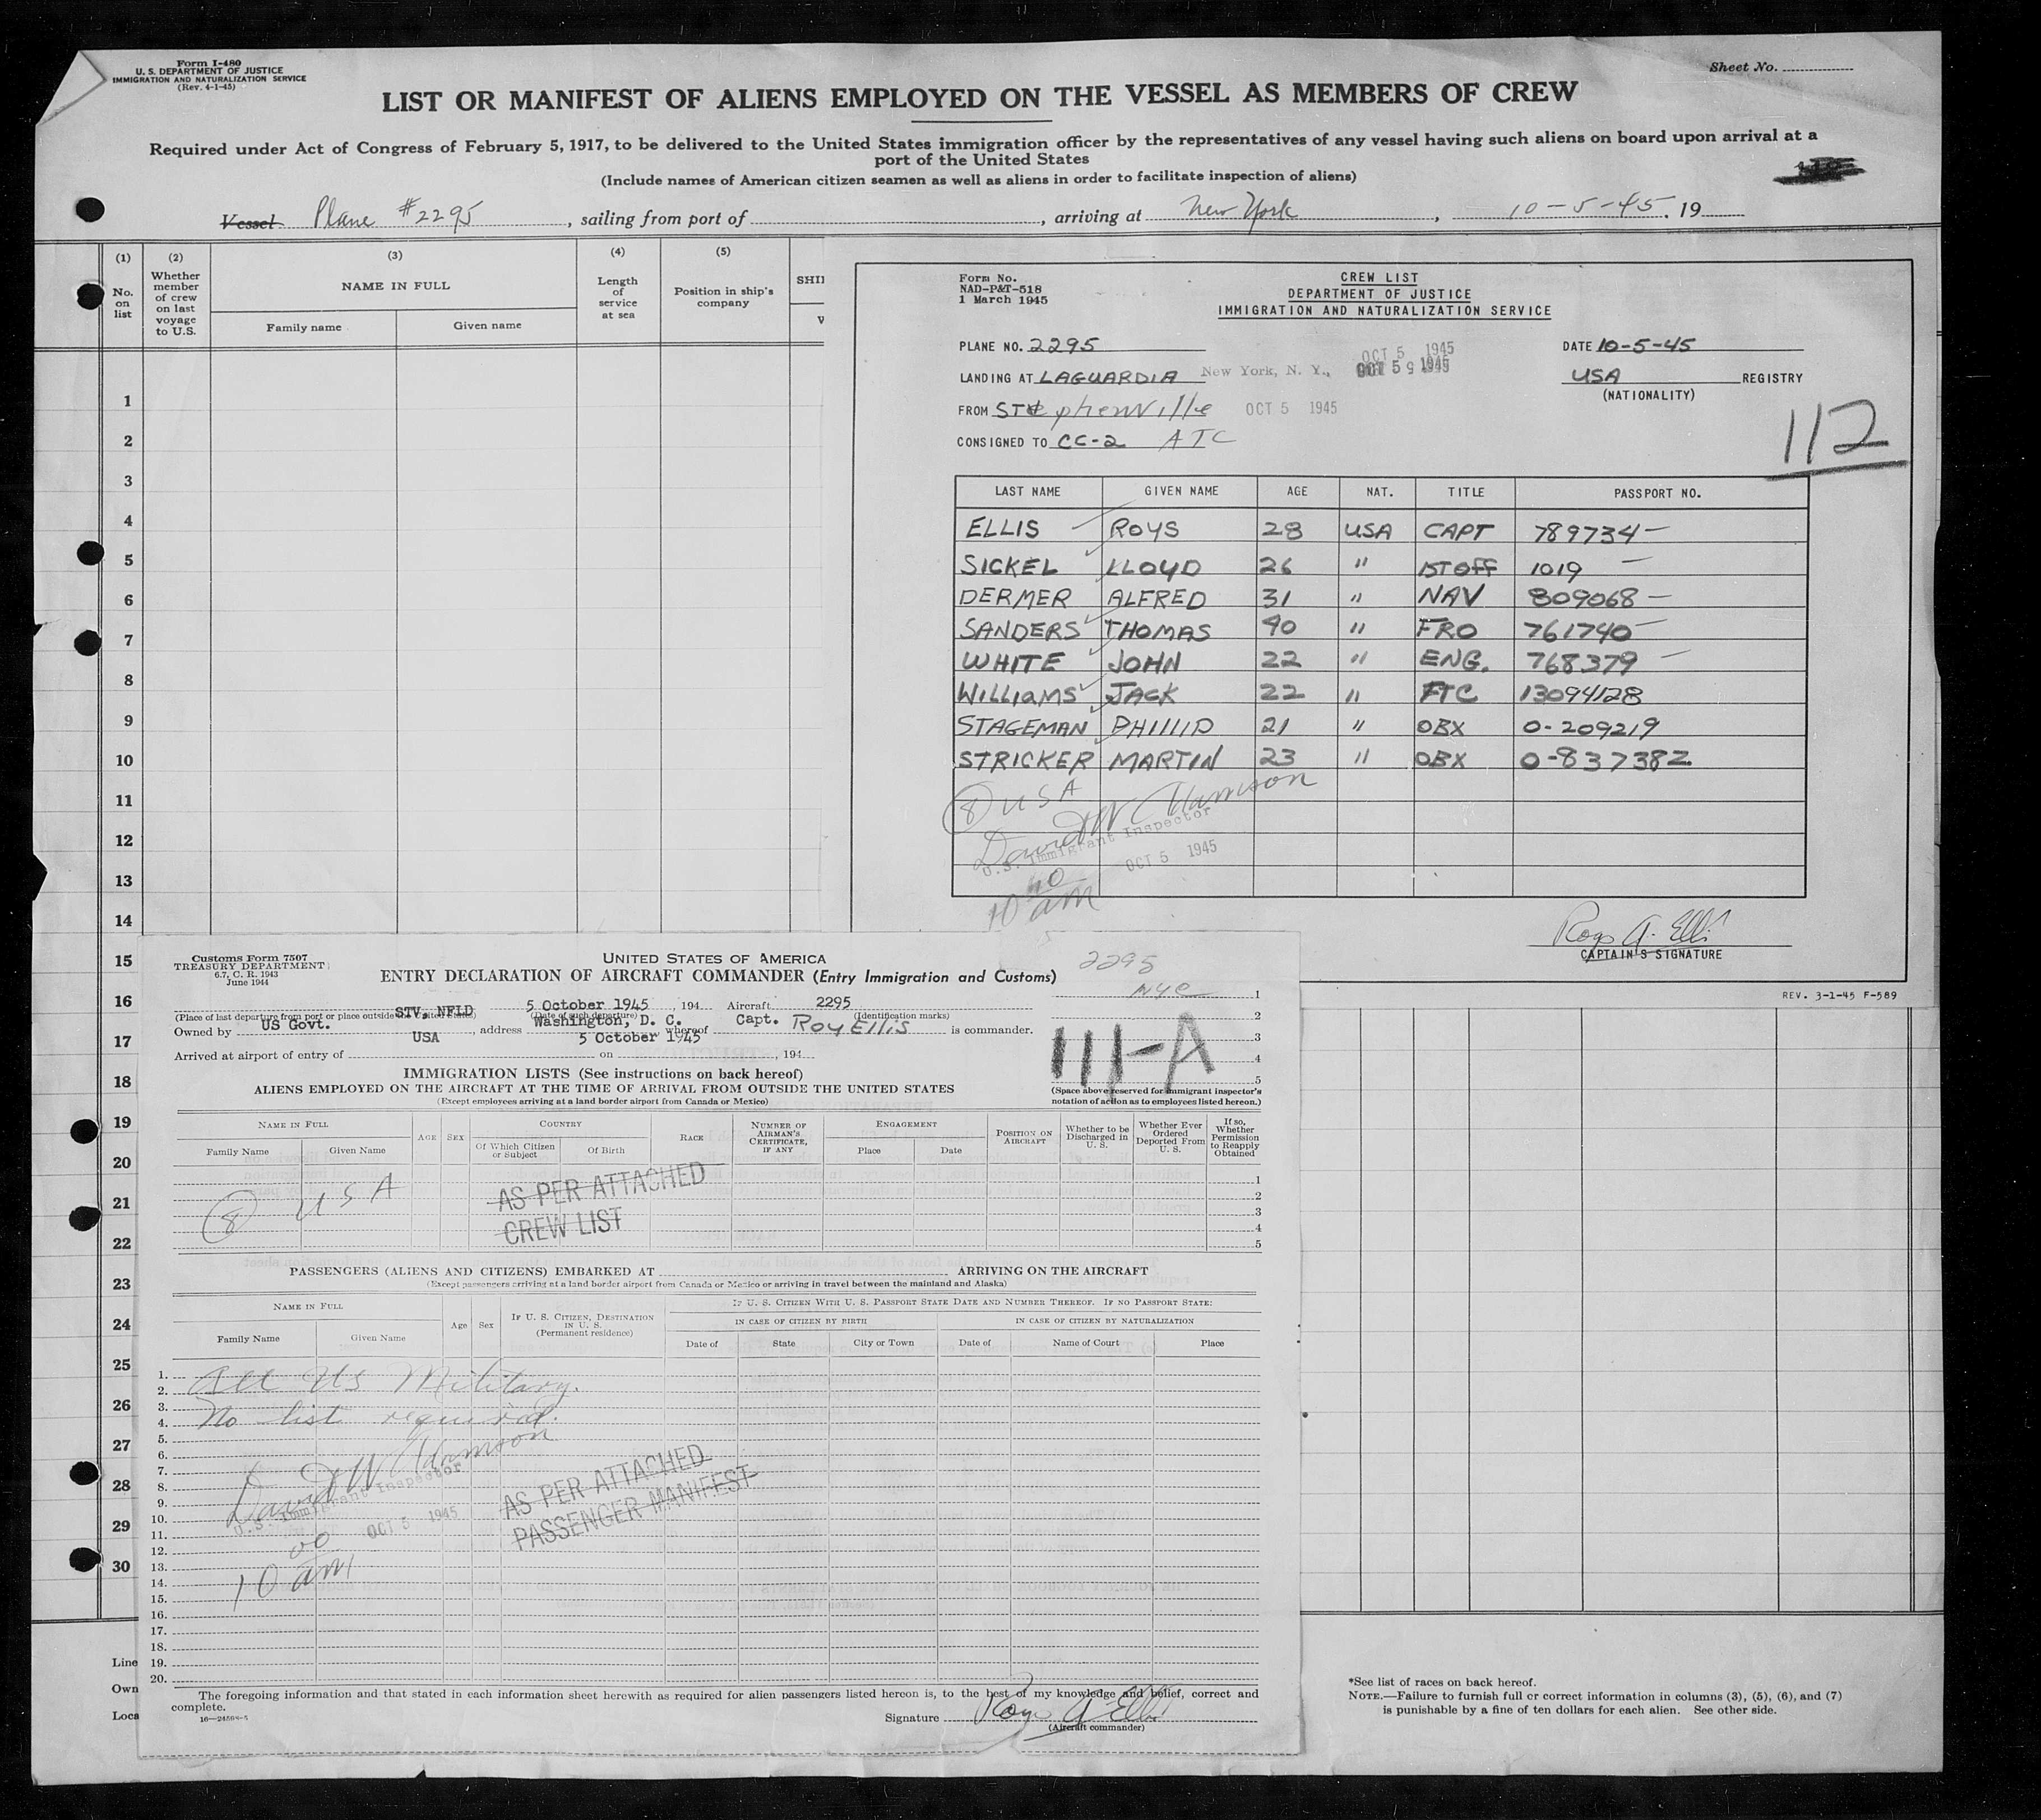 Form I-480
U. S. DEPARTMENT OF JUSTICE
IMMIGRATION AND NATURALIZATION SERVICE
(Rev. 4-1-45)
Sheet No.
LIST OR MANIFEST OF ALIENS EMPLOYED ON THE VESSEL AS MEMBERS OF CREW
Required under Act of Congress of February 5, 1917, to be delivered to the United States immigration officer by the representatives of any vessel having such aliens on board upon arrival at a
port of the United States
(Include names of American citizen seamen as well as aliens in order to facilitate inspection of aliens)
Vessel Plane #2295, sailing from port of , arriving at New York, 10-5-45, 19
(1) (2) (3) (4) (5)
No. on list
Whether member of crew on last voyage to U.S.
NAME IN FULL
Family name Given name
Length of service at sea
Position in ship's company
SHII
V
1
2
3
4
5
6
7
8
9
10
11
12
13
14
15
16
17
18
19
20
21
22
23
24
25
26
27
28
29
30
Line
Own
Loca
Form No.
NAD-P&T-518
1 March 1945
CREW LIST
DEPARTMENT OF JUSTICE
IMMIGRATION AND NATURALIZATION SERVICE
PLANE NO. 2295
OCT 5 1945
DATE 10-5-45
LANDING AT LAGUARDIA New York, N. Y., OCT 5 1945
USA REGISTRY
(NATIONALITY)
FROM STephenville OCT 5 1945
CONSIGNED TO CC-2 ATC
112
LAST NAME GIVEN NAME AGE NAT. TITLE PASSPORT NO.
ELLIS ROYS 28 USA CAPT 789734
SICKEL LLOYD 26 " 1ST OFF 1019
DERMER ALFRED 31 " NAV 809068
SANDERS THOMAS 40 " FRO 761740
WHITE JOHN 22 " ENG. 768379
WILLIAMS JACK 22 " FTC 13094128
STAGEMAN PHILLIP 21 " OBX 0-209219
STRICKER MARTIN 23 " OBX 0-837382
(8) USA
David W Hamson
U.S. Immigrant Inspector
OCT 5 1945
10 40 am
Roys A. Ellis
CAPTAIN'S SIGNATURE
REV. 3-1-45 F-589
Customs Form 7507
TREASURY DEPARTMENT
6.7, C. R. 1943
June 1944
UNITED STATES OF AMERICA
ENTRY DECLARATION OF AIRCRAFT COMMANDER (Entry Immigration and Customs)
2295
NYC
STV, NFLD 5 October 1945, 194 Aircraft 2295
(Place of last departure from port or place outside the United States) (Date of such departure) (Identification marks)
Owned by US Govt., address Washington, D. C. whereof Capt. Roy Ellis is commander.
USA 5 October 1945
Arrived at airport of entry of on , 194
1
2
3
4
5
111-A
(Space above reserved for immigrant inspector's
notation of action as to employees listed hereon.)
IMMIGRATION LISTS (See instructions on back hereof)
ALIENS EMPLOYED ON THE AIRCRAFT AT THE TIME OF ARRIVAL FROM OUTSIDE THE UNITED STATES
(Except employees arriving at a land border airport from Canada or Mexico)
NAME IN FULL
Family Name Given Name
AGE SEX
COUNTRY
Of Which Citizen or Subject Of Birth
RACE
NUMBER OF AIRMAN'S CERTIFICATE, IF ANY
ENGAGEMENT
Place Date
POSITION ON AIRCRAFT
Whether to be Discharged in U. S.
Whether Ever Ordered Deported From U. S.
If so, Whether Permission to Reapply Obtained
1
2
3
4
5
(8) USA
AS PER ATTACHED
CREW LIST
PASSENGERS (ALIENS AND CITIZENS) EMBARKED AT ARRIVING ON THE AIRCRAFT
(Except passengers arriving at a land border airport from Canada or Mexico or arriving in travel between the mainland and Alaska)
NAME IN FULL
Family Name Given Name
Age Sex
IF U. S. CITIZEN, DESTINATION IN U. S.
(Permanent residence)
IF U. S. CITIZEN WITH U. S. PASSPORT STATE DATE AND NUMBER THEREOF. IF NO PASSPORT STATE:
IN CASE OF CITIZEN BY BIRTH IN CASE OF CITIZEN BY NATURALIZATION
Date of State City or Town Date of Name of Court Place
1.
2.
3.
4.
5.
6.
7.
8.
9.
10.
11.
12.
13.
14.
15.
16.
17.
18.
19.
20.
All US Military.
No list required.
David W Hamson
U.S. Immigrant Inspector
OCT 5 1945
10 00 am
AS PER ATTACHED
PASSENGER MANIFEST
The foregoing information and that stated in each information sheet herewith as required for alien passengers listed hereon is, to the best of my knowledge and belief, correct and
complete.
Signature Roys A Ellis
(Aircraft commander)
*See list of races on back hereof.
NOTE.—Failure to furnish full or correct information in columns (3), (5), (6), and (7)
is punishable by a fine of ten dollars for each alien. See other side.